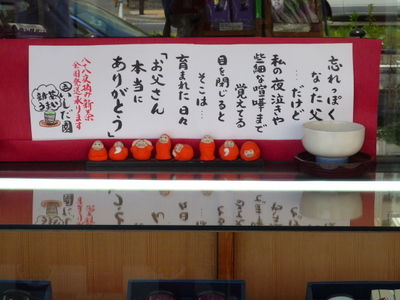 忘れっぽく
なった父
…だけど
私の夜泣きや
些細な喧嘩まで
覚えてる
目を閉じると
そこは…
育まれた日々
「お父さん
本当に
ありがとう」
八十八夜摘み新茶
全国発送承ります
いしだ園
新茶